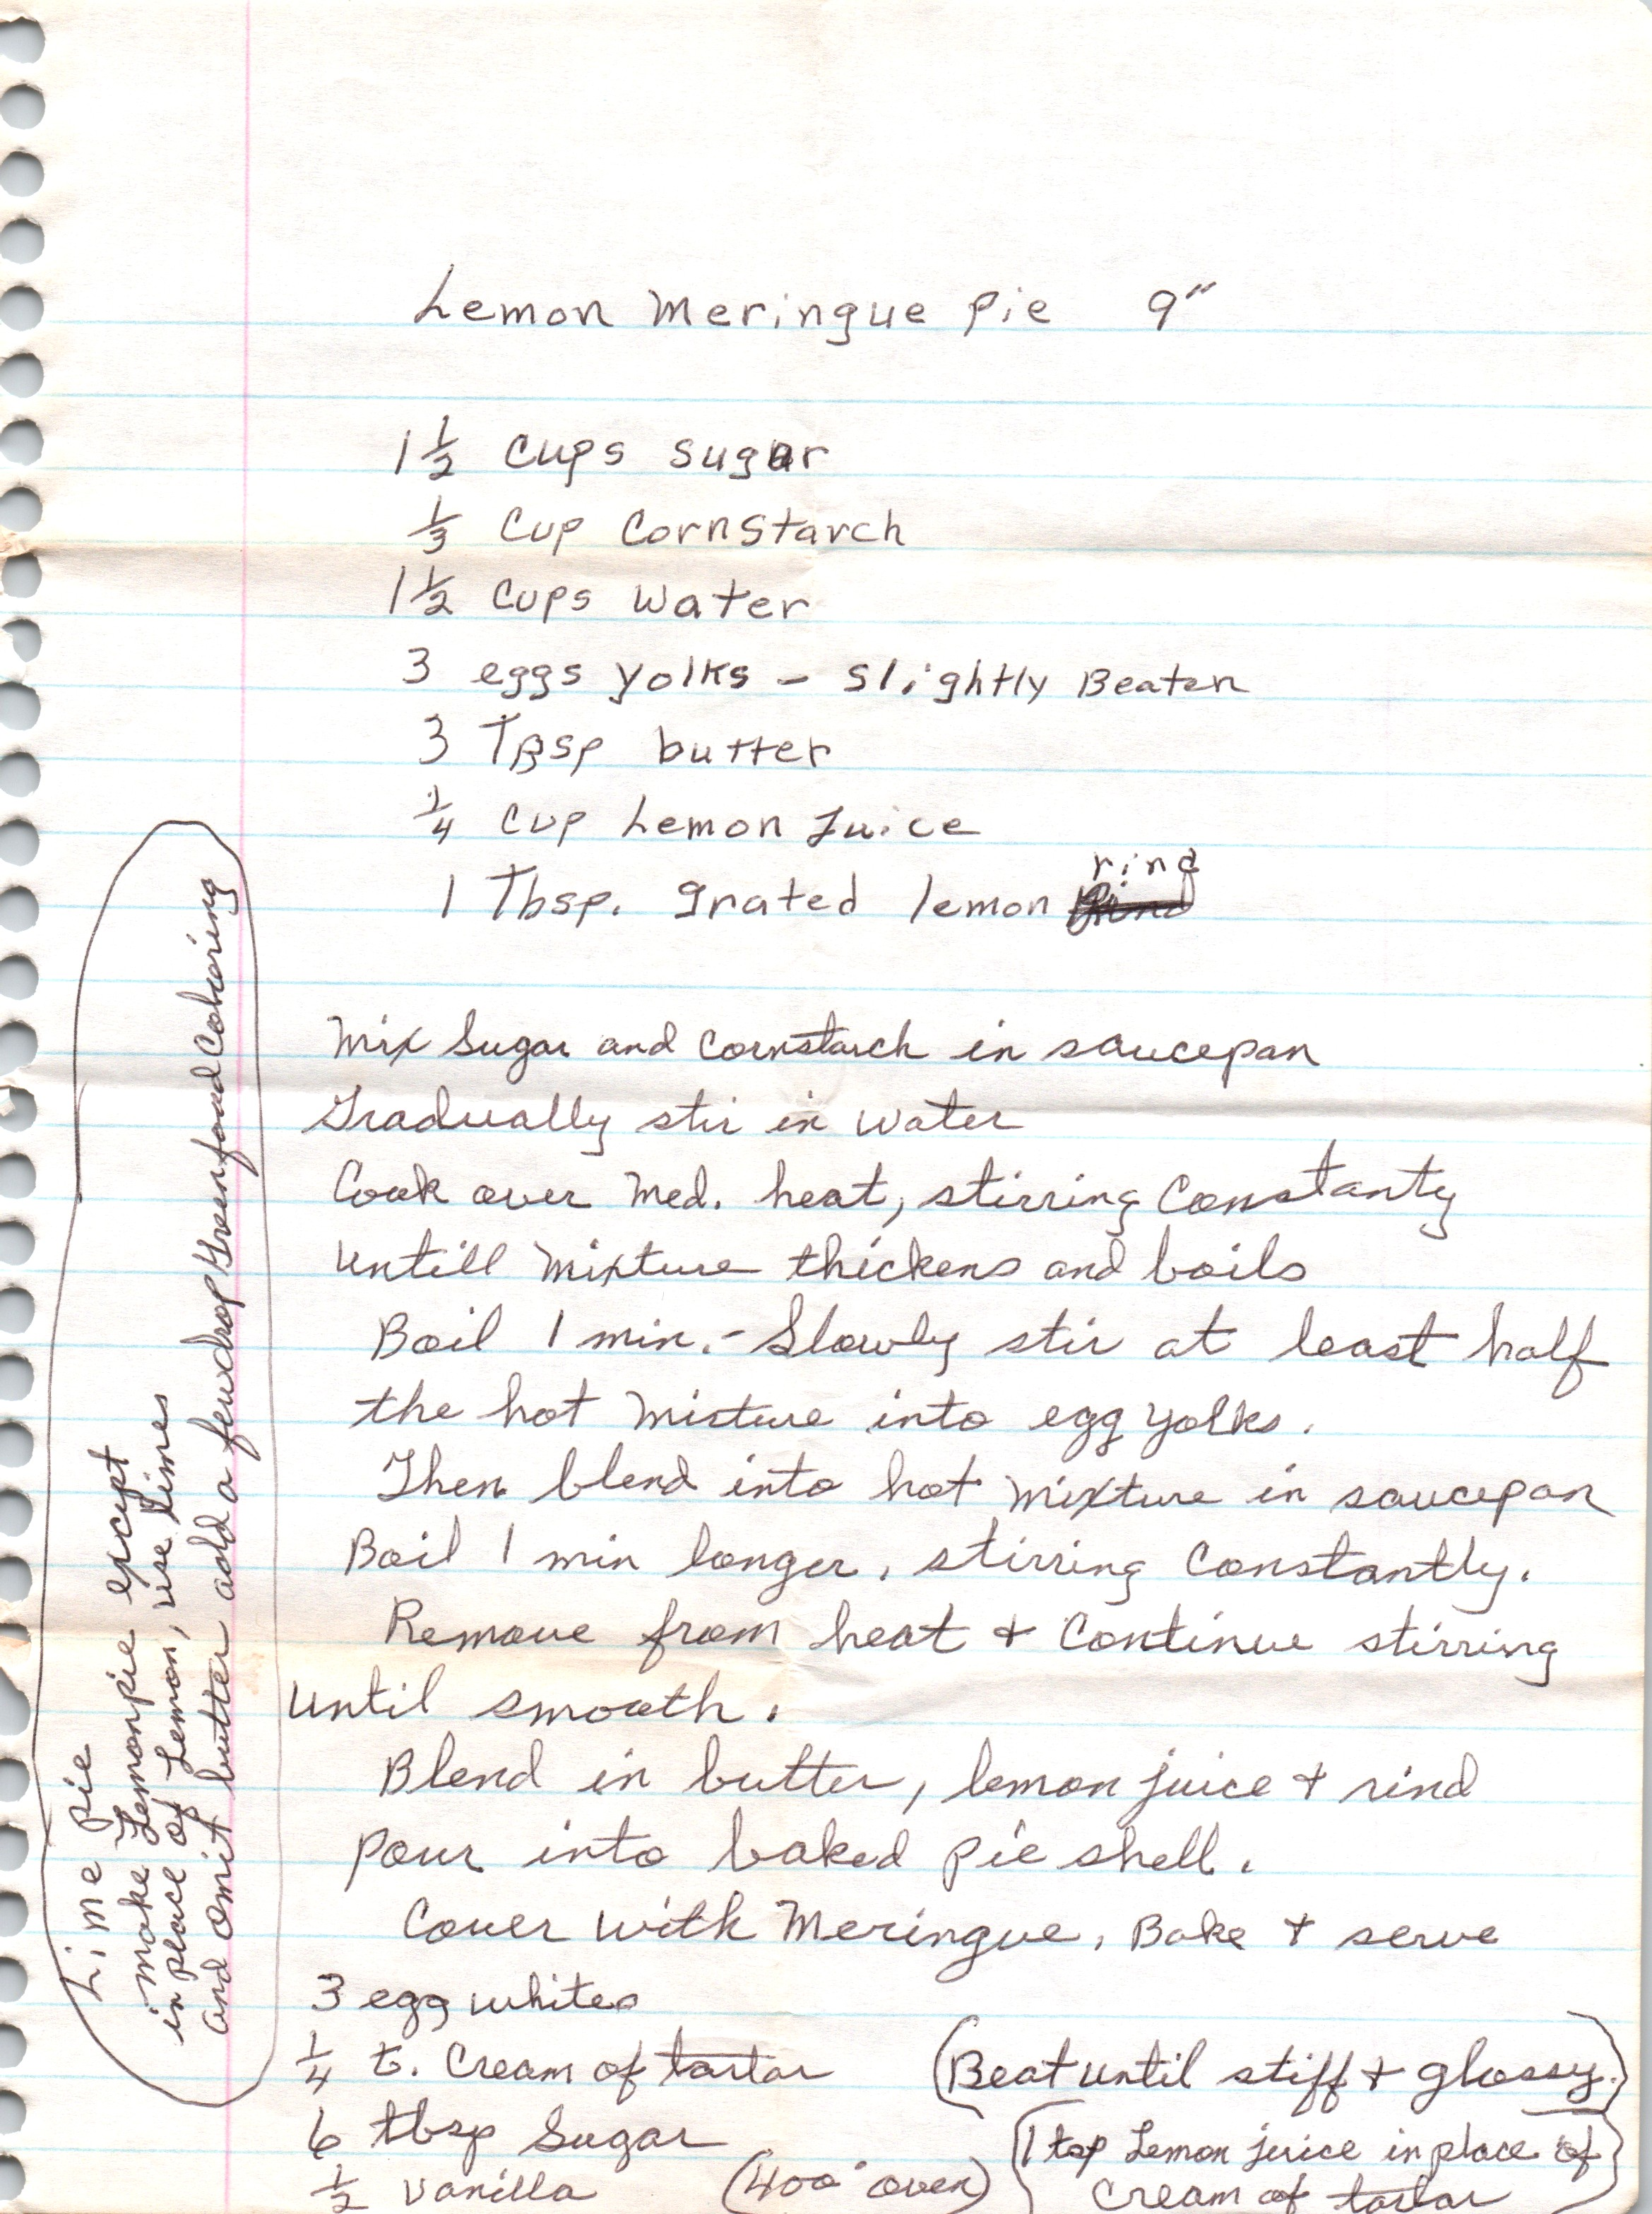 Lemon Meringue Pie 9"
1 1/2 Cups sugar
1/3 Cup CornStarch
1 1/2 Cups Water
3 eggs yolks - Slightly Beaten
3 TBsp butter
1/4 Cup Lemon Juice
rind
1 Tbsp. grated lemon
Mix Sugar and Cornstarch in saucepan
Gradually stir in water
Cook over Med. heat, stirring Constanty
untill Mixture thickens and boils
Boil 1 min. - Slowly stir at least half
the hot Mixture into egg yolks.
Then blend into hot Mixture in saucepan
Boil 1 min longer, stirring Constantly.
Remove from heat + Continue stirring
until smooth.
Blend in butter, lemon juice + rind
pour into baked pie shell.
Cover with Meringue, Bake + serve
3 egg whites
1/4 t. Cream of tartar (Beat until stiff + glossy.)
6 tbsp Sugar
1/2 Vanilla (400° oven)
(1 tsp Lemon juice in place of
Cream of tartar)
Lime Pie
make Lemonpie except
in place of Lemon, use limes
and omit butter add a few drop Green food Coloring